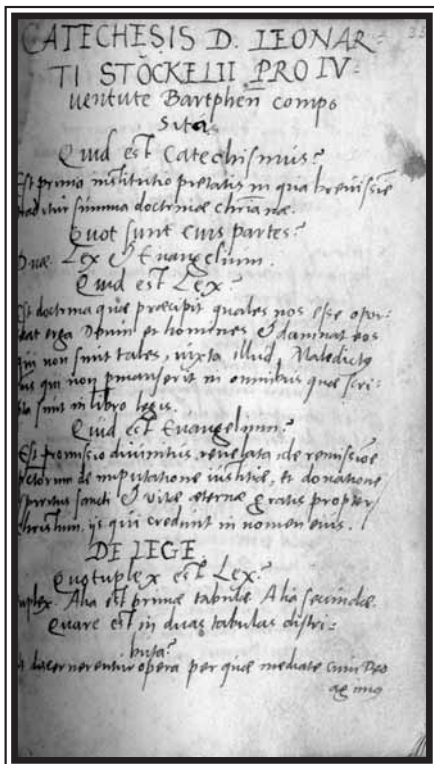 CATECHESIS D. LEONAR-
TI STÖCKELII PRO IV-
uentute Bartphen̄ compo
sita.
Quid est Catechismus?
Est prima institutio pietatis in qua breuissīe
traditur summa doctrinae chrīanae.
Quot sunt eius partes?
Duae. Lex & Euangelium.
Quid est Lex?
Est doctrina quae praecipit quales nos esse opor-
teat erga Deum et homines & damnat eos
qui non sunt tales, iuxta illud, Maledictus
qui non pmanserit in omnibus quae scri-
pta sunt in libro legis.
Quid est Euangelium?
Est promissio diuinitus reuelata de remissiōe
pctorum de imputatione iustitiae, et donatione
spiritus sancti & vitae aeternae gratis propter
christum, ijs qui credunt in nomen eius.
DE LEGE.
Quotuplex est Lex?
uplex. Alia est primae tabulae Alia secundae.
Quare est in duas tabulas distri-
buta?
discernerentur opera per quae mediate cum Deo
agimus